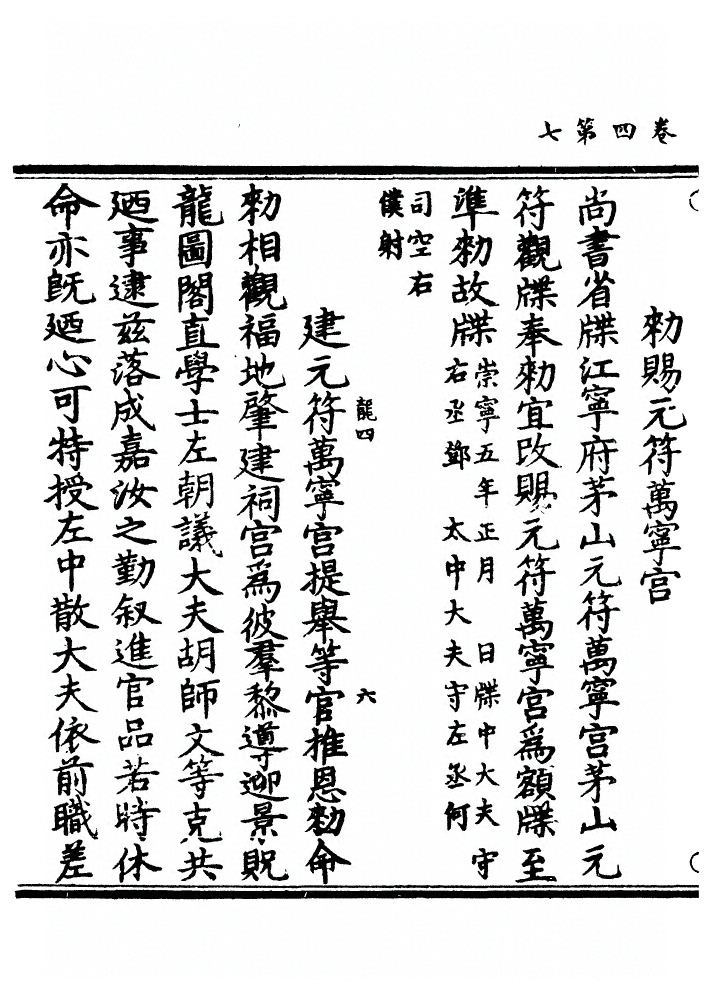 卷四第七
敕賜元符萬寧宮
尚書省牒江寧府茅山元符萬寧宮茅山元
符觀牒奉敕宜改賜元符萬寧宮為額牒至
準敕故牒崇寧五年正月 日牒中大夫守
右丞鄧 太中大夫守左丞何
司空右
僕射
龍四 六
建元符萬寧宮提舉等官推恩敕命
敕相觀福地肇建祠宮為彼羣黎導迎景貺
龍圖閣直學士左朝議大夫胡師文等克共
廼事逮茲落成嘉汝之勤叙進官品若時休
命亦旣廼心可特授左中散大夫依前職差